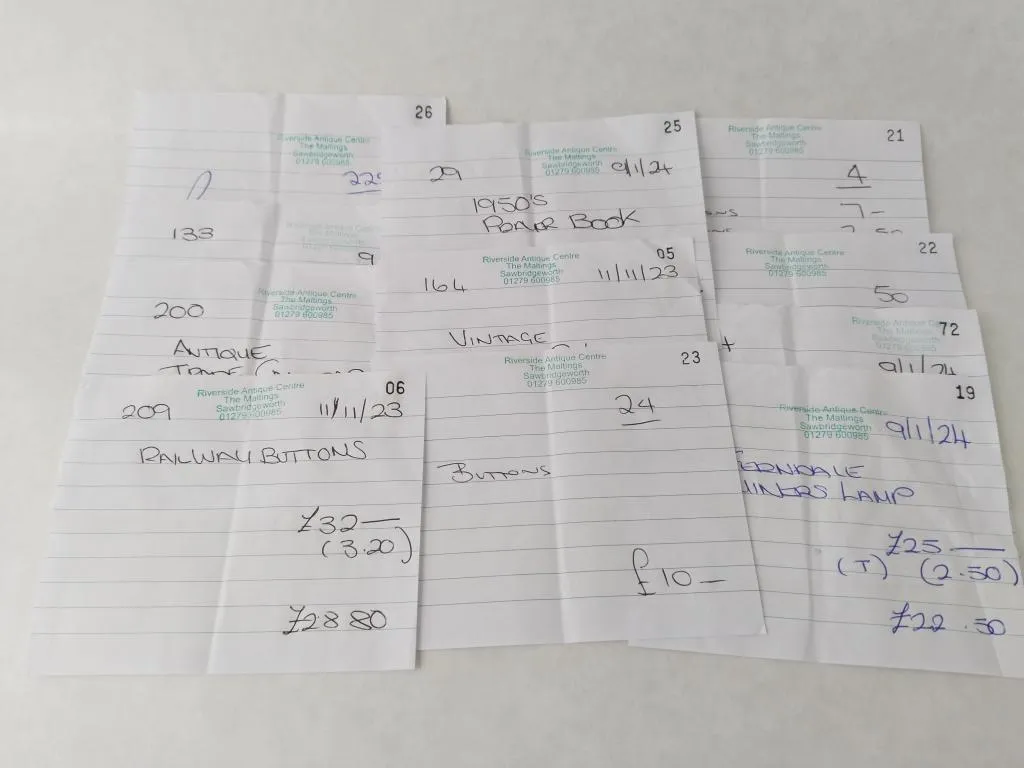 26
Riverside Antique Centre
The Maltings
Sawbridgeworth
01279 600985
133
9
200
Riverside Antique Centre
The Maltings
Sawbridgeworth
01279 600985
ANTIQUE
25
29
Riverside Antique Centre
The Maltings
Sawbridgeworth
01279 600985
9/1/24
1950'S
POWER BOOK
05
164
Riverside Antique Centre
The Maltings
Sawbridgeworth
01279 600985
11/11/23
VINTAGE
21
Riverside Antique Centre
The Maltings
Sawbridgeworth
01279 600985
4
7-
22
Riverside Antique Centre
The Maltings
Sawbridgeworth
01279 600985
50
72
Riverside Antique Centre
The Maltings
Sawbridgeworth
01279 600985
9/1/24
06
209
Riverside Antique Centre
The Maltings
Sawbridgeworth
01279 600985
11/11/23
RAILWAY BUTTONS
£32—
(3.20)
£28 80
23
Riverside Antique Centre
The Maltings
Sawbridgeworth
01279 600985
24
BUTTONS
£10—
19
Riverside Antique Centre
The Maltings
Sawbridgeworth
01279 600985
9/1/24
ERNDALE
INERS LAMP
£25—
(T) (2.50)
£22.50